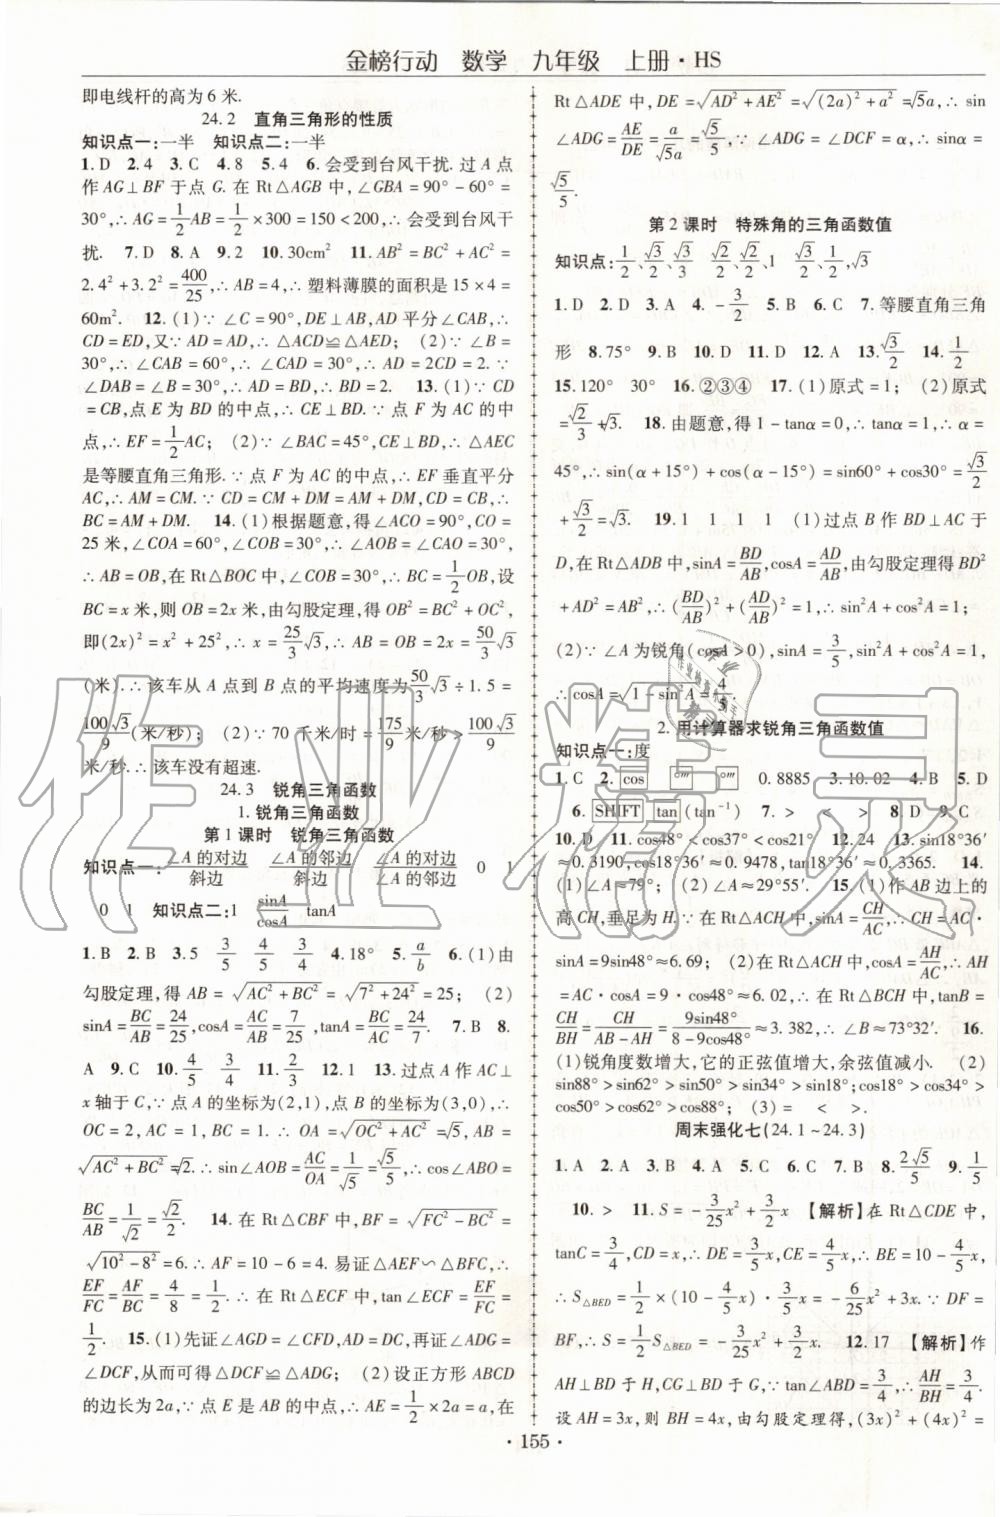 金榜行动 数学 九年级 上册·HS
即电线杆的高为6米.
24.2 直角三角形的性质
知识点一:一半 知识点二:一半
1. D 2. 4 3. C 4. 8 5. 4 6. 会受到台风干扰. 过 A 点
作 AG⊥BF 于点 G. 在 Rt△AGB 中,∠GBA=90°-60°=
30°,∴AG=1/2AB=1/2×300=150<200,∴会受到台风干
扰. 7. D 8. A 9. 2 10. 30cm² 11. AB²=BC²+AC²=
2.4²+3.2²=400/25,∴AB=4,∴塑料薄膜的面积是15×4=
60m². 12. (1)∵∠C=90°,DE⊥AB,AD 平分∠CAB,∴
CD=ED,又∵AD=AD,∴△ACD≌△AED; (2)∵∠B=
30°,∴∠CAB=60°,∴∠CAD=30°,∴AD=2CD=2. ∵
∠DAB=∠B=30°,∴AD=BD=2. 13. (1)∵CD
=CB,点 E 为 BD 的中点,∴CE⊥BD. ∵点 F 为 AC 的中
点,∴EF=1/2AC; (2)∵∠BAC=45°,CE⊥BD,∴△AEC
是等腰直角三角形. ∵点 F 为 AC 的中点,∴EF 垂直平分
AC,∴AM=CM. ∵CD=CM+DM=AM+DM,CD=CB,∴
BC=AM+DM. 14. (1)根据题意,得∠ACO=90°,CO=
25 米,∠COA=60°,∠COB=30°,∴∠AOB=∠CAO=30°,
∴AB=OB,在 Rt△BOC 中,∠COB=30°,∴BC=1/2OB,设
BC=x 米,则 OB=2x 米,由勾股定理,得 OB²=BC²+OC²,
即(2x)²=x²+25²,∴x=25/3√3,∴AB=OB=2x=50/3√3
(米). ∴该车从 A 点到 B 点的平均速度为50/3√3÷1.5=
100√3/9(米/秒); (2)∵70 千米/时=175/9米/秒>100√3/9
米/秒. ∴该车没有超速.
24.3 锐角三角函数
1. 锐角三角函数
第1课时 锐角三角函数
知识点一:∠A的对边/斜边 ∠A的邻边/斜边 ∠A的对边/∠A的邻边 0 1
0 1 知识点二:1 sinA/cosA tanA
1. B 2. B 3. 5 3/5 4/5 3/4 4. 18° 5. a/b 6. (1)由
勾股定理,得 AB=√(AC²+BC²)=√(7²+24²)=25; (2)
sinA=BC/AB=24/25,cosA=AC/AB=7/25,tanA=BC/AC=24/7. 7. B 8.
A 9. C 10. 4/5 11. 3/4 12. 1/3 13. 过点 A 作 AC⊥
x 轴于 C,∵点 A 的坐标为(2,1),点 B 的坐标为(3,0),∴
OC=2,AC=1,BC=1. ∴OA=√(OC²+AC²)=√5,AB=
√(AC²+BC²)=√2. ∴sin∠AOB=AC/OA=1/√5=√5/5,∴cos∠ABO=
BC/AB=1/√2=√2/2. 14. 在 Rt△CBF 中,BF=√(FC²-BC²)=
√(10²-8²)=6. ∴AF=10-6=4. 易证△AEF∽△BFC,∴
EF/FC=AF/BC=4/8=1/2. ∴在 Rt△ECF 中,tan∠ECF=EF/FC=
1/2. 15. (1)先证∠AGD=∠CFD,AD=DC,再证∠ADG=
∠DCF,从而可得△DCF≌△ADG; (2)设正方形 ABCD
的边长为2a,∵点 E 是 AB 的中点,∴AE=1/2×2a=a,在
Rt△ADE 中,DE=√(AD²+AE²)=√((2a)²+a²)=√5a,∴sin
∠ADG=AE/DE=a/√5a=√5/5,∵∠ADG=∠DCF=α,∴sinα=
√5/5.
第2课时 特殊角的三角函数值
知识点:1/2、√3/2、√3/3 √2/2、√2/2、1 √3/2、1/2,√3
1. D 2. D 3. A 4. -3/2 5. B 6. C 7. 等腰直角三角
形 8. 75° 9. B 10. D 11. D 12. A 13. √3/2 14. 1/2
15. 120° 30° 16. ②③④ 17. (1)原式=1; (2)原式
=√2/3+√3. 18. 由题意,得1-tanα=0,∴tanα=1,∴α=
45°,∴sin(α+15°)+cos(α-15°)=sin60°+cos30°=√3/2
+√3/2=√3. 19. 1 1 1 1 (1)过点 B 作 BD⊥AC 于
D,在 Rt△ADB 中,sinA=BD/AB,cosA=AD/AB,由勾股定理得 BD²
+AD²=AB²,∴(BD/AB)²+(AD/AB)²=1,∴sin²A+cos²A=1;
(2)∵∠A 为锐角(cosA>0),sinA=3/5,sin²A+cos²A=1,
∴cosA=√(1-sin²A)=4/5.
2. 用计算器求锐角三角函数值
知识点一:度
1. C 2. cos °′″ °′″ 0.8885 3. 10.02 4. B 5. D
6. SHIFT tan (tan⁻¹) 7. > < > 8. D 9. C
10. D 11. cos48°<cos37°<cos21° 12. 24 13. sin18°36′
≈0.3190,cos18°36′≈0.9478,tan18°36′≈0.3365. 14.
(1)∠A≈79°; (2)∠A≈29°55′. 15. (1)作 AB 边上的
高 CH,垂足为 H. ∵在 Rt△ACH 中,sinA=CH/AC,∴CH=AC·
sinA=9sin48°≈6.69; (2)∵在 Rt△ACH 中,cosA=AH/AC,∴AH
=AC·cosA=9·cos48°≈6.02,∴在 Rt△BCH 中,tanB=
CH/BH=CH/AB-AH=9sin48°/8-9cos48°≈3.382,∴∠B≈73°32′. 16.
(1)锐角度数增大,它的正弦值增大,余弦值减小. (2)
sin88°>sin62°>sin50°>sin34°>sin18°;cos18°>cos34°>
cos50°>cos62°>cos88°; (3)= < >.
周末强化七(24.1~24.3)
1. A 2. B 3. B 4. A 5. C 6. B 7. B 8. 2√5/5 9. 1/5
10. > 11. S=-3/25x²+3/2x 【解析】在 Rt△CDE 中,
tanC=3/4,CD=x,∴DE=3/5x,CE=4/5x,∴BE=10-4/5x,
∴S△BED=1/2×(10-4/5x)·3/5x=-6/25x²+3x. ∵DF=
BF,∴S=1/2S△BED=-3/25x²+3/2x. 12. 17 【解析】作
AH⊥BD 于 H,CG⊥BD 于 G,∵tan∠ABD=3/4,∴AH/BH=3/4.
设 AH=3x,则 BH=4x,由勾股定理得,(3x)²+(4x)²=
·155·
作业精灵